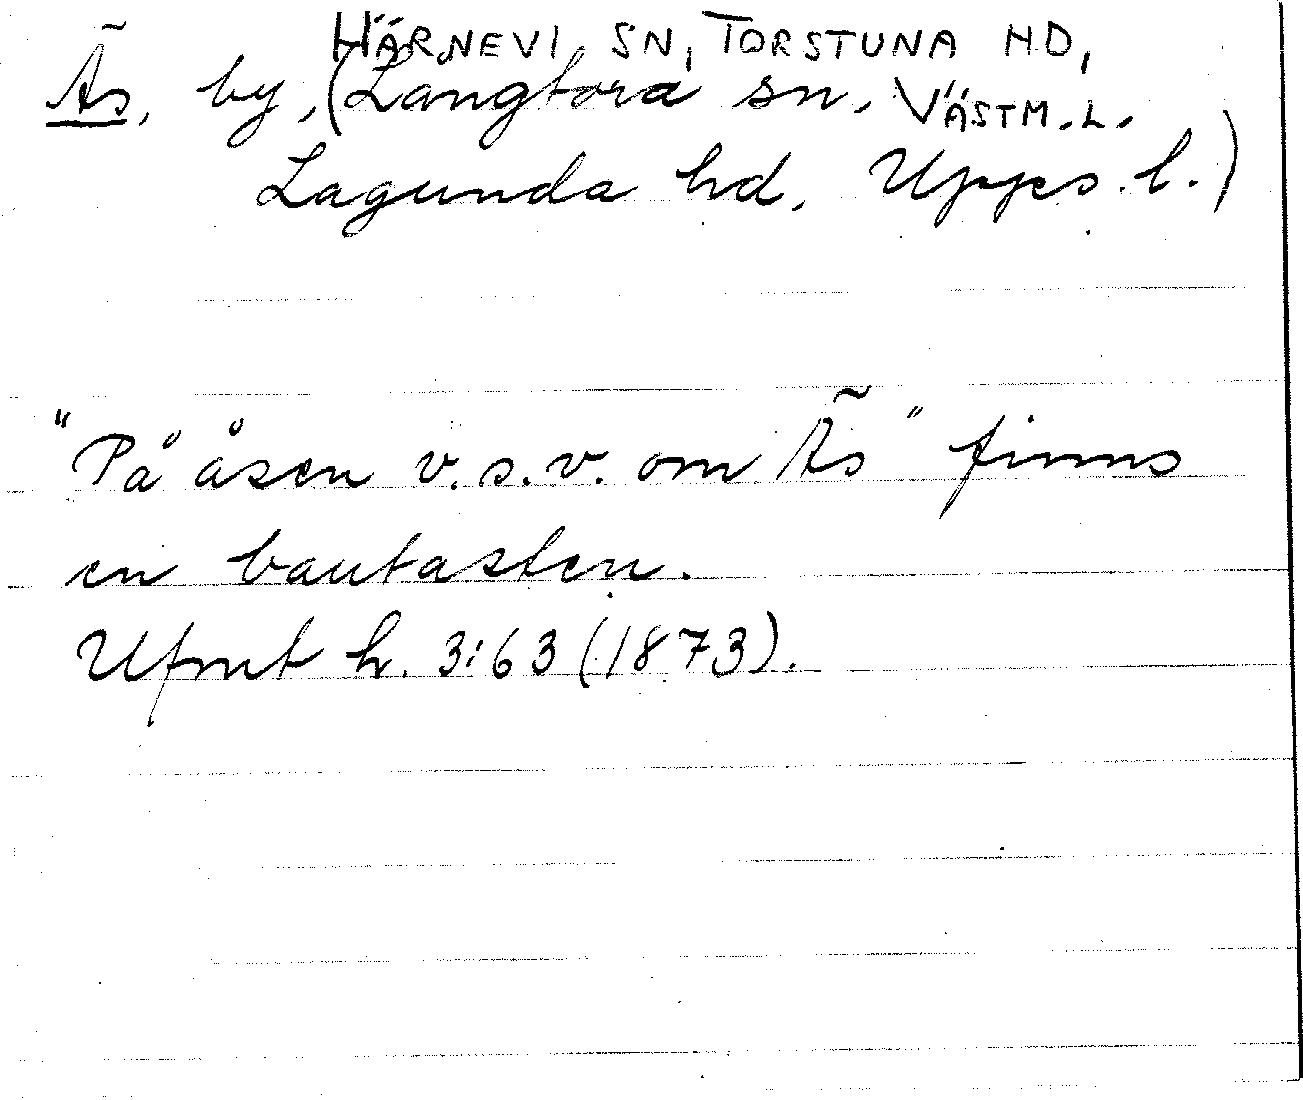 HÄRNEVI SN, TORSTUNA HD,
Äs, by, (Långtora sn. VÄSTM. L.
Lagunda hd, Upps. l.)
"På åsen v.s.v. om Äs" finns
en bautasten.
Ufmt h. 3:63 (1873).